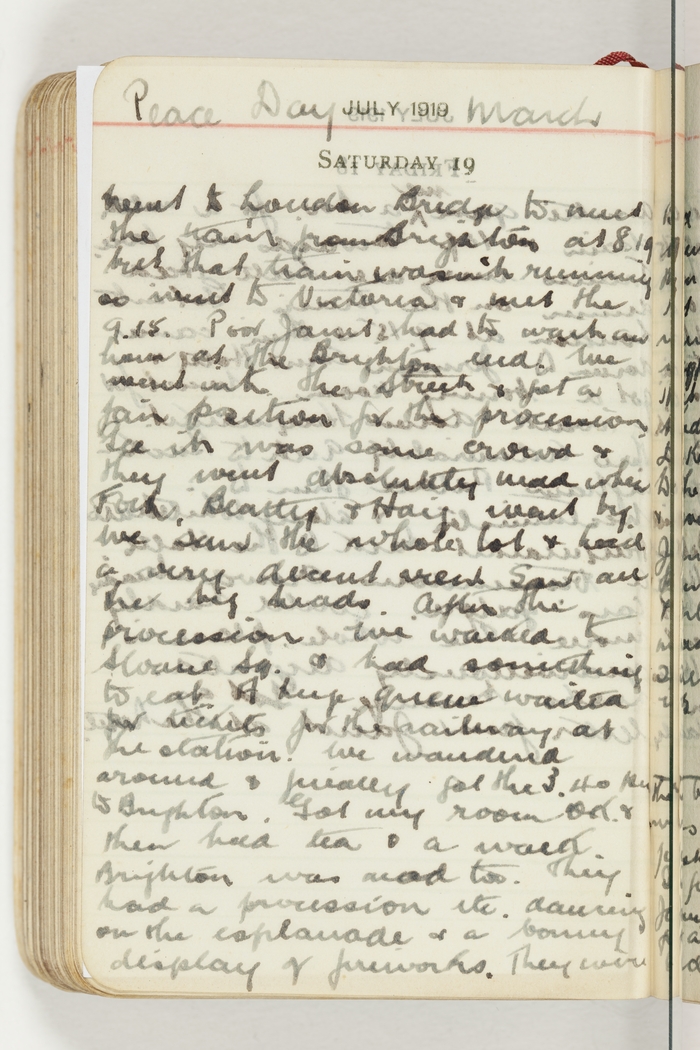 Peace Day JULY 1919 March
SATURDAY 19
Went to London Bridge to meet
the train from Brighton at 8.19
but that train wasn't running
so went to Victoria & met the
9.15. Poor Janet had to wait an
hour at the Brighton end. We
went into the Street & got a
fair position for the procession
Gee it was some crowd &
they went absolutely mad when
Foch, Beatty & Haig went by
We saw the whole lot & had
a very decent Saw all
the big heads. After the
procession we walked to
Sloane Sq. & had something
to eat. A huge queue waited
for tickets for the railway at
the station. We wandered
around & finally got the 3.40
to Brighton. Got my room OK. &
then had tea & a walk
Brighton was mad too. They
had a procession etc. dancing
on the esplanade & a bonny
display of fireworks. They were